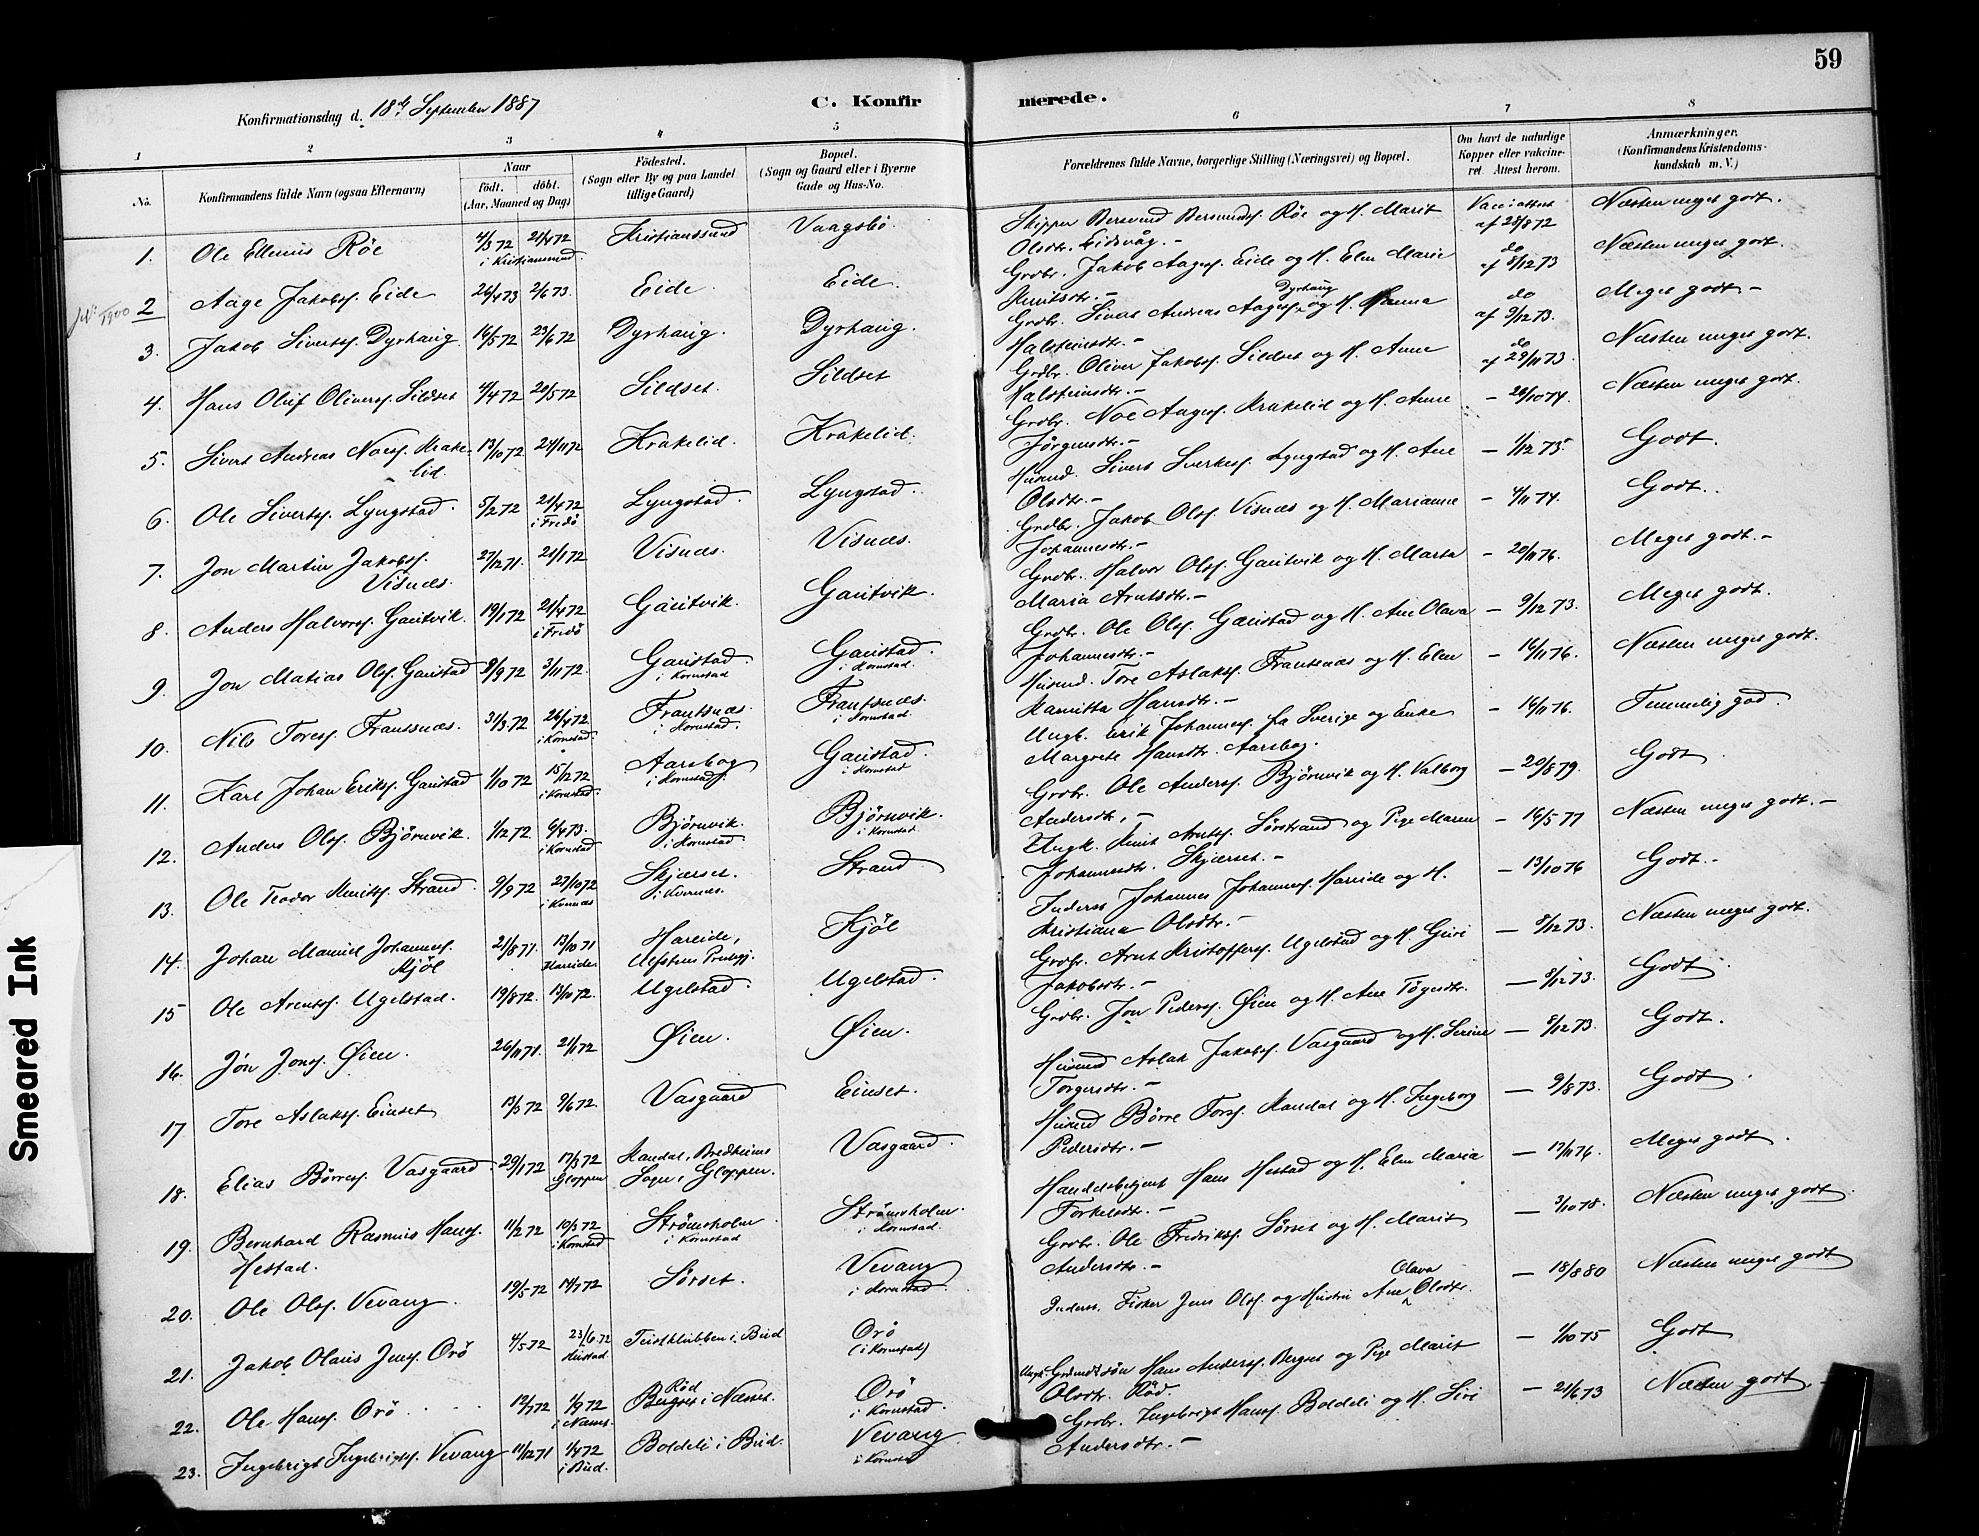 59
Konfirmationsdag d. 18de September 1887
C. Konfirmerede.
1 2 3 4 5 6 7 8
No. Konfirmandens fulde Navn (ogsaa Efternavn) Naar født, døbt. (Aar, Maaned og Dag) Fødested. (Sogn eller By og paa Landet tillige Gaard) Bopæl. (Sogn og Gaard eller i Byerne Gade og Hus-No. Forældrenes fulde Navne, borgerlige Stilling (Næringsvei) og Bopæl. Om havt de naturlige Kopper eller vakcineret. Attest herom. Anmærkninger. (Konfirmandens Kristendomskundskab m. V.)
1. Ole Røe 4/3 72 21/4 72 i Kristianssund Kristianssund Vaagsbø. Skipper Røe og H. Marit Olsdtr. Eidsvåg. - Vacc. attest af 28/8 72 Næsten meget godt.
2 Aage Jakobss. Eide 26/4 73 2/6 73. Eide. Eide. Grdbr. Jakob Aagess. Eide og H. Elen Marie Knutsdtr. - do af 8/12 73 Næsten meget godt.
3. Jakob Sivertss. Dyrhaug 16/5 72 23/6 72 Dyrhaug. Dyrhaug. Grdbr. Sivert Andreas Aagess. Dyrhaug og H. Hanna Halsteinsdtr. - do af 9/12 73. Meget godt -
4. Hans Oluf Oliverss. Sildset 4/4 72 20/5 72 Sildset. Sildset Grdbr. Oliver Jakobss. Sildset og H. Anne Halsteinsdtr. - do af 29/11 73. Næsten meget godt.
5. Sivert Andreas Noess. Krakelid 13/10 72 24/11 72 Krakelid. Krakelid. Grdbr. Noe Aagess. Krakelid og H. Anne Jørgensdtr. - - 26/10 74. Næsten meget godt.
6. Ole Sivertss. Lyngstad. 5/2 72 21/4 72 i Fredø Lyngstad. Lyngstad. Husmd. Sivert Sverkess. Lyngstad og H. Ane Olsdtr. - - 1/12 75. Godt.
7. Jon Martin Jakobss. Visnæs. 27/12 71. 21/1 72 Visnæs. Visnæs. Grdbr. Jakob Olss. Visnæs og H. Marianne Johannesdtr. - - 4/11 74. Godt.
8. Anders Halvorss. Gautvik. 19/1 72 21/4 72 i Fredø Gautvik. Gautvik. Grdbr. Halvor Olss. Gautvik og H. Marta Maria Arntsdtr. - - 20/11 76. Meget godt. -
9. Jon Matias Olss. Gaustad 8/9 72 3/11 72. Gaustad. i Kornstad Gaustad. i Kornstad. Grdbr. Ole Olss. Gaustad og H. Ane Olava Johannesdtr. - - 9/12 73. Meget godt.
10. Nils Toress. Frantsnæs. 31/3 72 26/4 72 i Kornstad. Frantsnæs. i Kornstad. Frantsnæs. i Kornstad. Husmd. Tore Aslakss. Frantsnæs og H. Elen Hansdtr. - - 16/11 76. Næsten meget godt.
11. Karl Johan Erikss. Gaustad 1/10 72 15/12 72 i Kornstad. Aarsbog i Kornstad. Gaustad. i Kornstad Ungk. Erik Johanness. fra Sverige og Enke Margrete Hansdtr. Aarsbog. - 14/11 76. Temmelig god.
12. Anders Olss. Bjørnvik. 1/12 72 6/4 73. i Kornstad Bjørnvik. i Kornstad Bjørnvik. i Kornstad Grdbr. Ole Anderss. Bjørnvik og H. Valborg Andersdtr. - - 20/8 79. Godt
13. Ole Teodor Knutss. Strand. 9/9 72 27/10 72 i Kvernæs Skjærset. i Kvernæs. Strand Ungk. Knut Arntss. Sørstrand og Pige Maren Johannesdtr. Skjærset. - - 16/5 77 Næsten meget godt. -
14. Johan Manuel Johanness. Kjøl 21/8 71. 13/10 71 Hareide Hareide, Ulfstens Præstgj. Kjøl Inderst Johannes Johanness. Hareide og H. Kristiana Olsdtr. - - 13/10 76 Godt. -
15 Ole Arentss. Ugelstad. 19/8 72. 13/10 72. Ugelstad. Ugelstad. Grdbr. Arnt Kristofferss. Ugelstad og H. Guri Jakobsdtr. - - 8/12 73. Næsten meget godt.
16. Jon Jonss. Øien. 26/11 71. 21/1 72 Øien. Øien. Grdbr. Jon Pederss. Øien og H. Ane Tøgersdtr. - 8/12 73. Godt
17 Tore Aslakss. Einset 13/5 72 9/6 72. Vasgaard Einset. Husmd Aslak Jakobss. Vasgaard og H. Serine Torgersdtr. - - 8/12 73. Godt.
18. Elias Børress. Vasgaard. 29/1 72 17/3 72 Gloppen Kandal, Bredheims Sogn, Gloppen. Vasgaard. Husmd Børre Torss. Kandal og H. Ingeborg Pedersdtr. - - 9/8 73. Godt.
19. Bernhard Rasmus Hanss. Hestad. 11/2 72 10/3 72 i Kornstad Strømsholm. i Kornstad Strømsholm. i Kornstad. Handelsbetjent Hans Hestad og H. Elen Maria Torkelsdtr. - - 17/11 76. Meget godt.
20. Ole Olss. Vevang. 19/5 72 14/7 72 Sørset. Vevang i Kornstad. Grdbr. Ole Fredrikss. Sørset og H. Marit Andersdtr. - - 3/10 78. Næsten meget godt
21. Jakob Olaus Jenss. Orø 4/5 72 23/6 72 Hustad. Teistklubben i Bud Orø (i Kornstad) Inderst Fisker Jens Olss. og Hustru Ane Olava Olsdtr. - 18/8 80 Næsten meget godt
22. Ole Hanss. Orø 12/7 72 1/9 72 i Næsset. Rød Bergset i Næsset. Orø i Kornstad. Ungk. Grdmdssøn Hans Anderss. Bergset og Pige Marit Olsdtr. Rød. - 1/10 75 Godt
23. Ingebrigt Ingebrigtss. Vevang 11/12 71 1/4 72 i Bud. Boldeli i Bud. Vevang. i Kornstad Grdbr. Ingebrigt Hanss. Boldeli og H. Siri Andersdtr. - - 21/6 73 Næsten godt. -
Smeared Ink